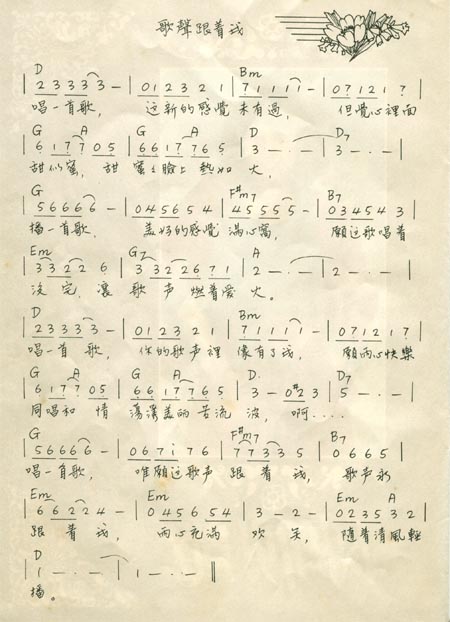 歌聲跟着我
D Bm
| 2 3 3 3 3 3 – | 0 1 2 3 2 1 | 7 1 1 1 1 – | 0 7 1 2 1 7 |
唱一首歌， 这新的感覺未有過， 但覺心裡面
G A G A D D7
| 6 1 7 7 0 5 | 6 6 1 7 7 6 5 | 3 – · – | 3 – · – |
甜似蜜， 甜蜜々臉上熱如火，
G F#m7 B7
| 5 6 6 6 6 – | 0 4 5 6 5 4 | 4 5 5 5 5 – | 0 3 4 5 4 3 |
播一首歌， 美好的感覺滿心窩， 願这歌唱着
Em G7 A
| 3 3 2 2 6 | 3 3 2 2 6 7 1 | 2 – · – | 2 – · – |
没完，讓歌声燃着愛火。
D Bm
| 2 3 3 3 3 3 – | 0 1 2 3 2 1 | 7 1 1 1 1 – | 0 7 1 2 1 7 |
唱一首歌， 你的歌声裡像有了我， 願兩心快樂
G A G A D D7
| 6 1 7 7 0 5 | 6 6 1 7 7 6 5 | 3 – 0 #2 3 | 5 – · – |
同唱和 情蕩漾美的苦流波， 啊‥‥
G F#m7 B7
| 5 6 6 6 6 – | 0 6 7 i 7 6 | 7 7 3 3 5 | 0 6 6 5 |
唱一首歌， 唯願这歌声跟着我， 歌声永
Em Em Em A
| 6 6 2 2 4 – | 0 4 5 6 5 4 | 3 – 2 – | 0 2 3 5 3 2 |
跟着我， 兩心充滿欢笑， 隨着清風輕
D
| 1 – · – | 1 – · – ||
播。